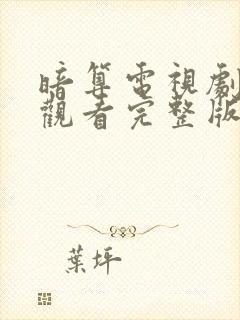 暗算電視劇
觀看完整版
葉坪